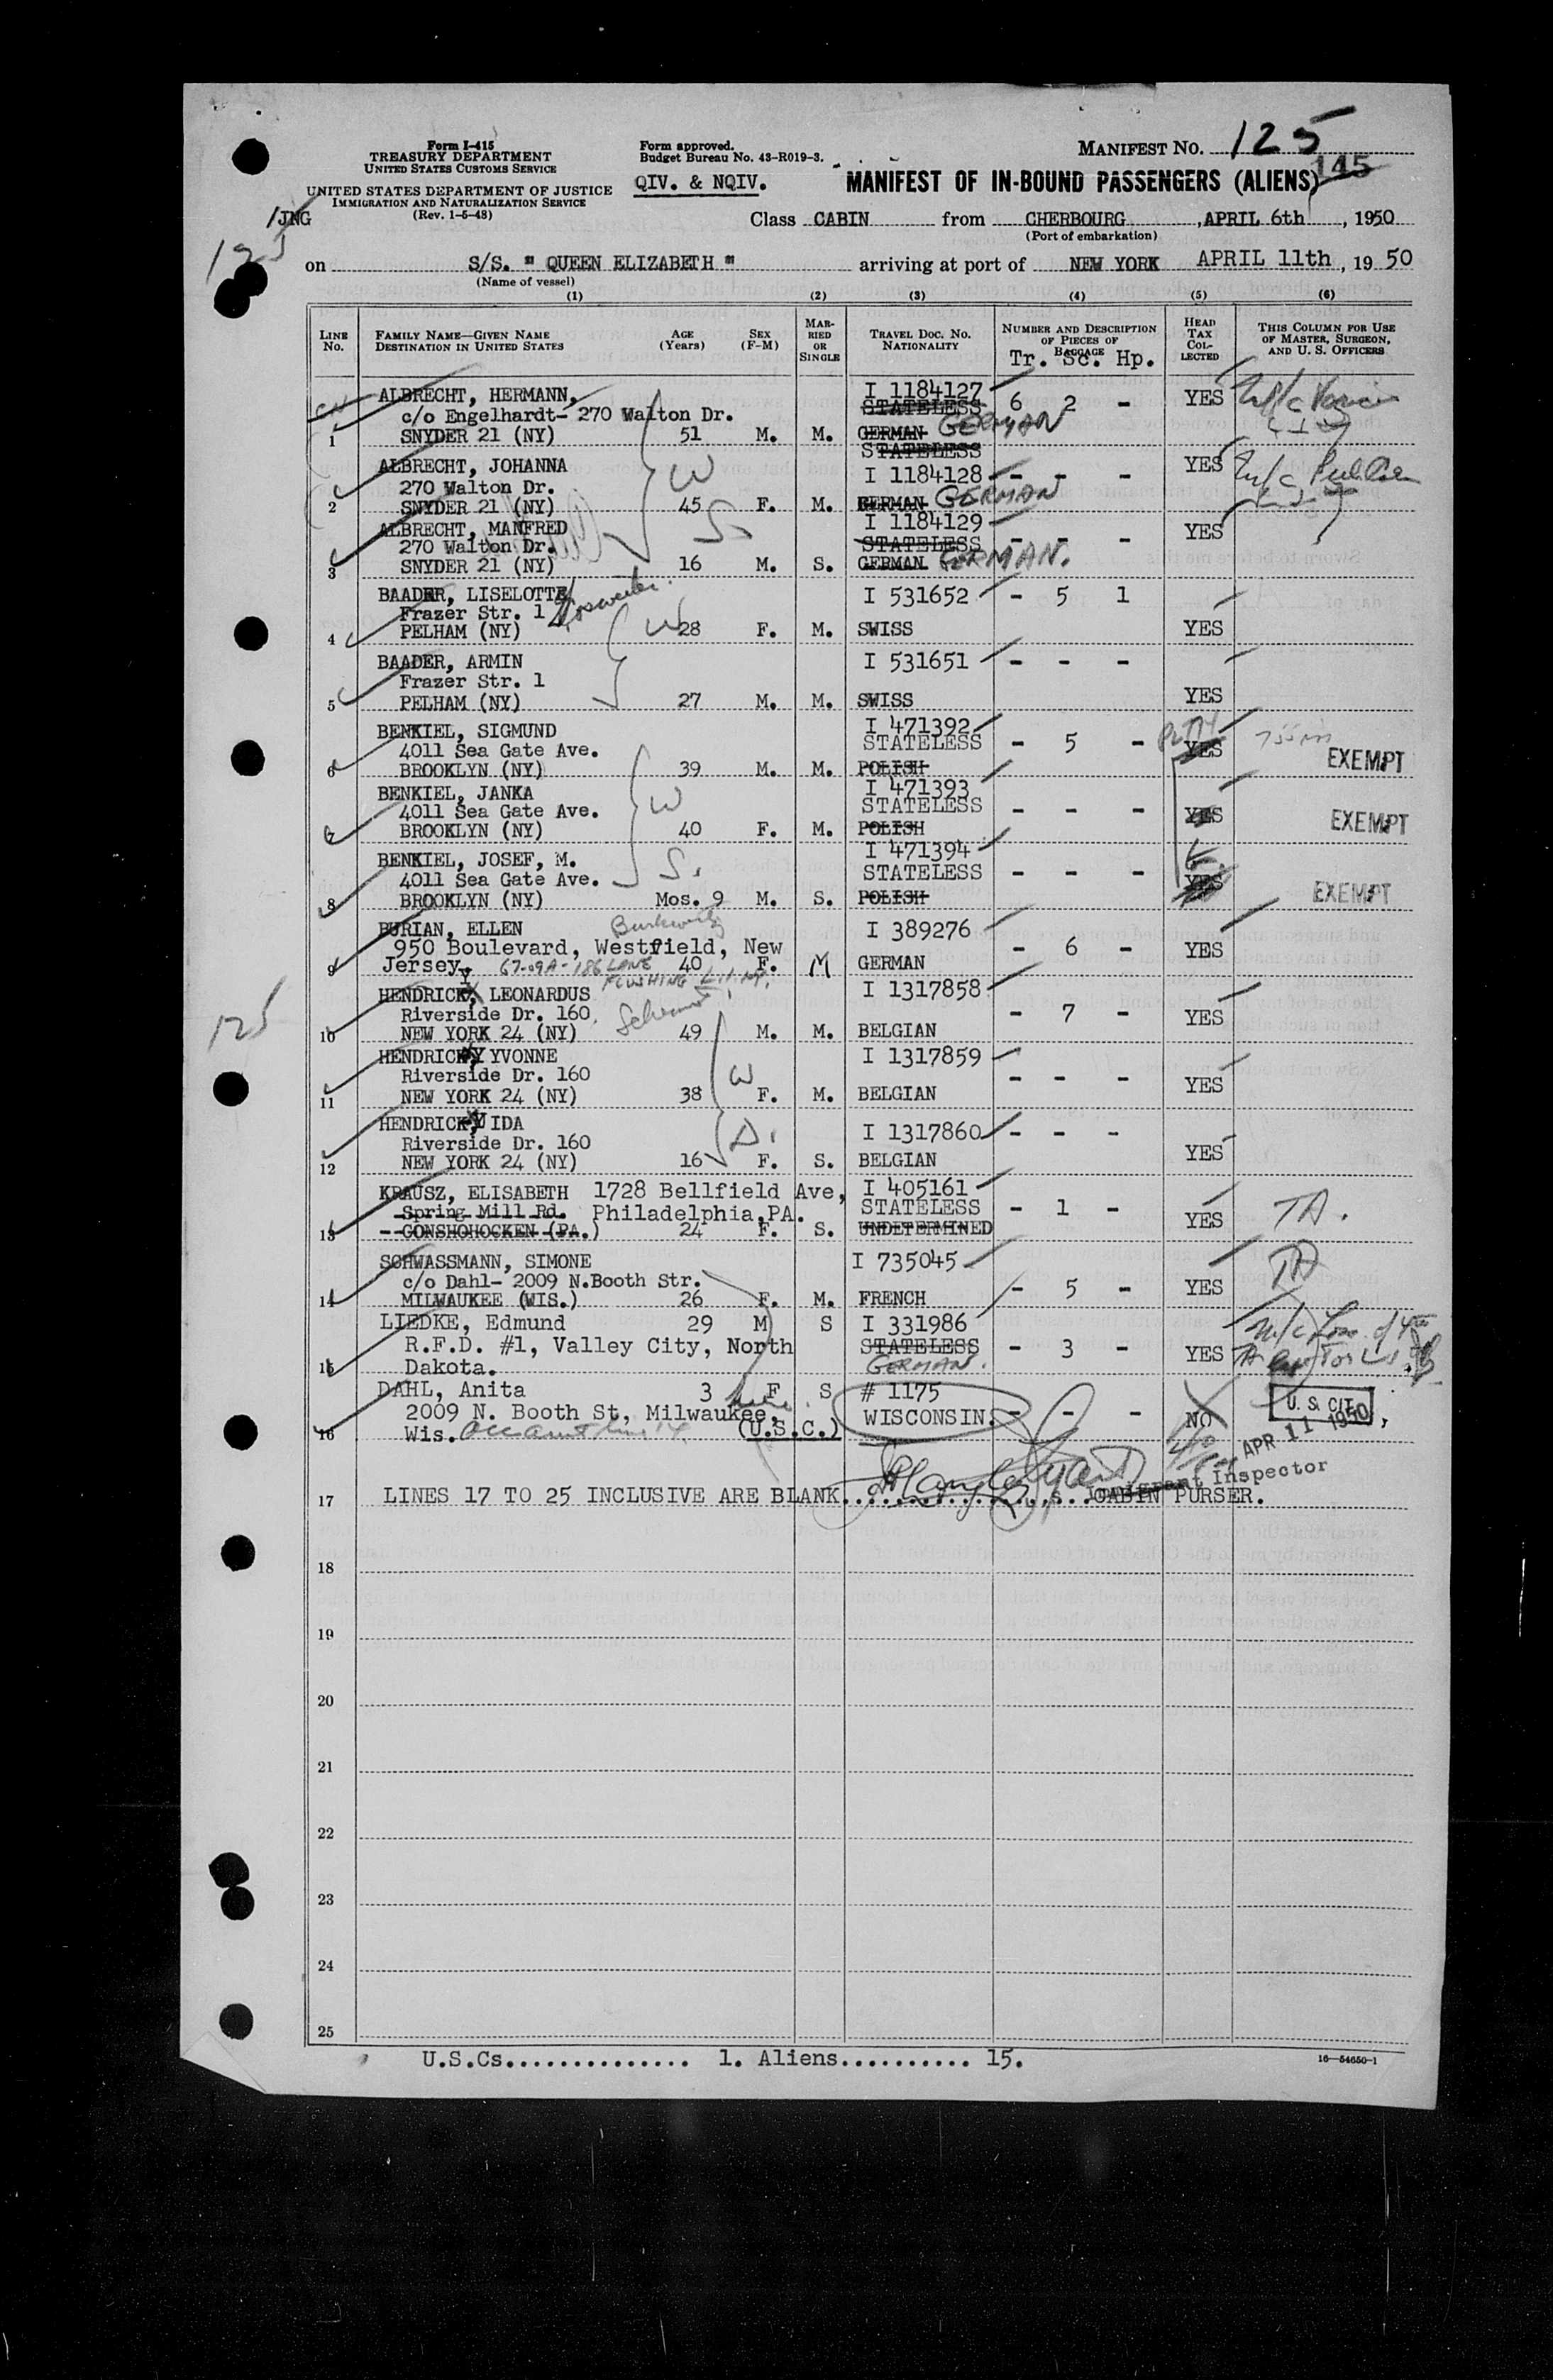 Form I-415
TREASURY DEPARTMENT
UNITED STATES CUSTOMS SERVICE
UNITED STATES DEPARTMENT OF JUSTICE
IMMIGRATION AND NATURALIZATION SERVICE
(Rev. 1-5-48)
/JNG
Form approved.
Budget Bureau No. 43-R019-3.
QIV. & NQIV.
MANIFEST NO. 125
145
MANIFEST OF IN-BOUND PASSENGERS (ALIENS)
Class CABIN from CHERBOURG, APRIL 6th, 1950
(Port of embarkation)
125
on S/S. " QUEEN ELIZABETH " arriving at port of NEW YORK APRIL 11th, 19 50
(Name of vessel)
(1) (2) (3) (4) (5) (6)
LINE No. FAMILY NAME—GIVEN NAME DESTINATION IN UNITED STATES AGE (Years) SEX (F-M) MARRIED OR SINGLE TRAVEL DOC. NO. NATIONALITY NUMBER AND DESCRIPTION OF PIECES OF BAGGAGE Tr. Sc. Hp. HEAD TAX COLLECTED THIS COLUMN FOR USE OF MASTER, SURGEON, AND U. S. OFFICERS
ALBRECHT, HERMANN, I 1184127 6 2 - YES
c/o Engelhardt- 270 Walton Dr. STATELESS
1 SNYDER 21 (NY) 51 M. M. GERMAN GERMAN
STATELESS
ALBRECHT, JOHANNA I 1184128 - - - YES
270 Walton Dr. W
2 SNYDER 21 (NY) 45 F. M. GERMAN GERMAN
ALBRECHT, MANFRED I 1184129 - - - YES
270 Walton Dr. S. STATELESS
3 SNYDER 21 (NY) 16 M. S. GERMAN GERMAN.
BAADER, LISELOTTE I 531652 - 5 1
Frazer Str. 1
4 PELHAM (NY) W 28 F. M. SWISS YES
BAADER, ARMIN I 531651 - - -
Frazer Str. 1
5 PELHAM (NY) 27 M. M. SWISS YES
BENKIEL, SIGMUND I 471392
4011 Sea Gate Ave. STATELESS - 5 - YES EXEMPT
6 BROOKLYN (NY) 39 M. M. POLISH
BENKIEL, JANKA I 471393
4011 Sea Gate Ave. W STATELESS - - - YES EXEMPT
7 BROOKLYN (NY) 40 F. M. POLISH
BENKIEL, JOSEF, M. I 471394
4011 Sea Gate Ave. S. STATELESS - - - YES EXEMPT
8 BROOKLYN (NY) Mos. 9 M. S. POLISH
BURIAN, ELLEN I 389276
950 Boulevard, Westfield, New - 6 - YES
9 Jersey. 67-09A-186 LANE 40 F. M GERMAN
FLUSHING L.I. NY.
HENDRICKX, LEONARDUS Y I 1317858
125
Riverside Dr. 160 - 7 - YES
10 NEW YORK 24 (NY) 49 M. M. BELGIAN
HENDRICKY YVONNE I 1317859
Riverside Dr. 160 W - - - YES
11 NEW YORK 24 (NY) 38 F. M. BELGIAN
HENDRICKY IDA I 1317860 - - -
Riverside Dr. 160 D. YES
12 NEW YORK 24 (NY) 16 F. S. BELGIAN
KRAUSZ, ELISABETH 1728 Bellfield Ave, I 405161
Spring Mill Rd. Philadelphia,PA. STATELESS - 1 - YES TA.
13 --CONSHOHOCKEN (PA.) 24 F. S. UNDETERMINED
SCHWASSMANN, SIMONE I 735045
c/o Dahl- 2009 N.Booth Str. - 5 - YES TA
14 MILWAUKEE (WIS.) 26 F. M. FRENCH
LIEDKE, Edmund 29 M S I 331986
R.F.D. #1, Valley City, North STATELESS - 3 - YES
15 Dakota. GERMAN.
DAHL, Anita 3 F S # 1175
2009 N. Booth St, Milwaukee, WISCONSIN. - - - NO U. S. CIT.
16 Wis. (U.S.C.) APR 11 1950
Immigrant Inspector
17 LINES 17 TO 25 INCLUSIVE ARE BLANK. CABIN PURSER.
18
19
20
21
22
23
24
25
U.S.Cs............... 1. Aliens.......... 15.
16—54650-1